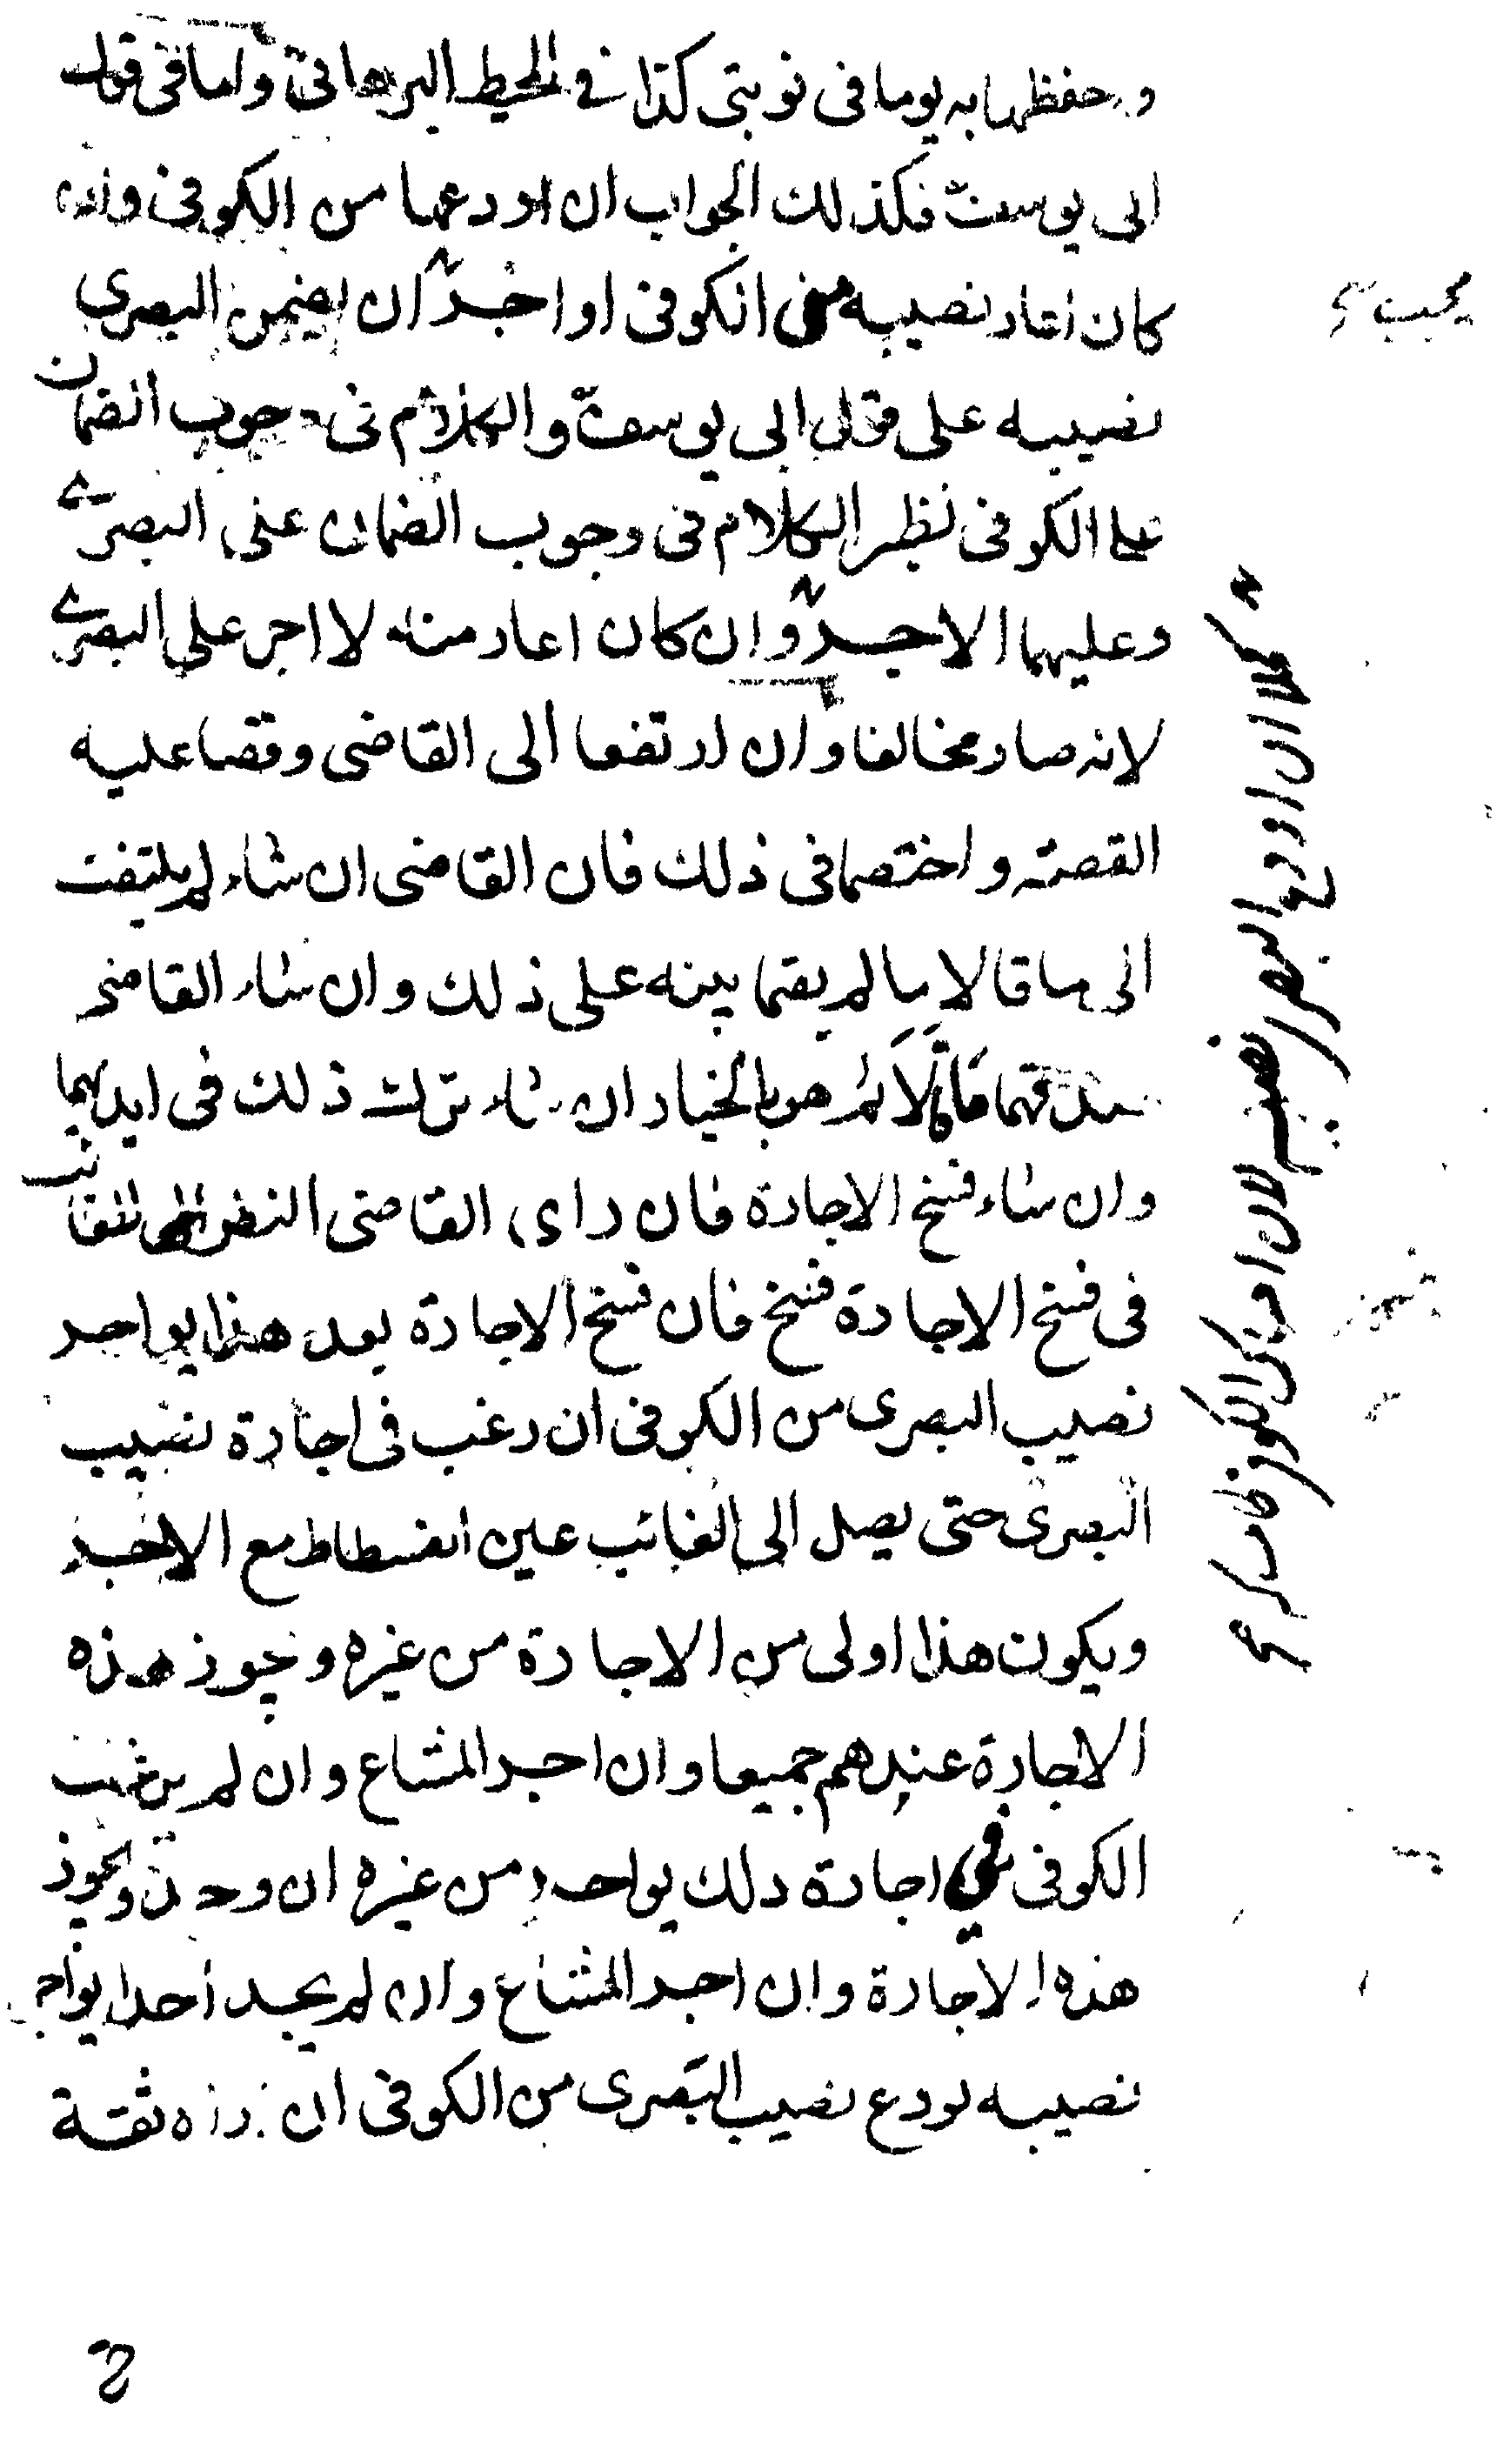 وحفظها به يوما فى نوبتى كذا فى المحيط البرهانى واما فى قول
ابى يوسف فكذلك الجواب ان اودعها من الكوفى وان
كان اعار نصيبه من الكوفى او اجر ان يضمن البصرى
نصيبه على قول ابى يوسف والكلام فى وجوب الضمان
على الكوفى نظير الكلام فى وجوب الضمان على البصرى
وعليهما الاجر وان كان اعار منه لا اجر على البصرى
لانه صار مخالفا وان ارتفعا الى القاضى وقصا عليه
القصة واختصما فى ذلك فان القاضى ان شاء لم يلتفت
الى ما قالا ما لم يقيما بينه على ذلك وان شاء القاضى
صدقهما ثم هو بالخيار ان شاء ترك ذلك فى ايديهما
وان شاء فسخ الاجارة فان راى القاضى النظر للغائب
فى فسخ الاجارة فسخ فان فسخ الاجارة بعد هذا يواجر
نصيب البصرى من الكوفى ان رغب فى اجارة نصيب
البصرى حتى يصل الى الغائب عين الفسطاط مع الاجر
ويكون هذا اولى من الاجارة من غيره ويجوز هذه
الاجارة عندهم جميعا وان اجر المشاع وان لم يرغب
الكوفى فى اجارة ذلك يواجر من غيره ان وجد ويجوز
هذه الاجارة وان اجر المشاع وان لم يجد احدا يواجر
نصيبه يودع نصيب البصرى من الكوفى ان راه ثقة